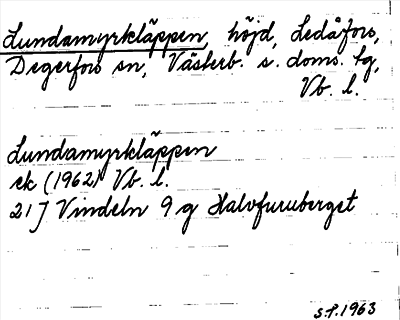 Lundamyrkläppen, höjd, Ledåfors,
Degerfors sn, Västerb. s. doms. tg,
Vb. l.
Lundamyrkläppen
ek (1962) Vb. l.
21J Vindeln 9 g Halvfuruberget
S.P. 1963